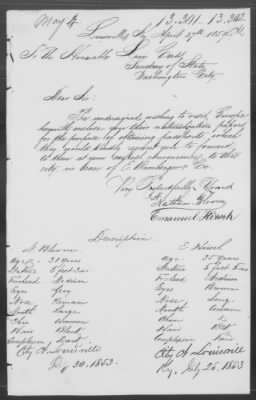 May 4. 13,301 - 13,302
Louisville Ky April 27th 185
To the Honorable Lewis Cass
Secretary of State
Washington City
Dear Sir:
The undersigned wishing to visit Europe
herewith enclose you their naturalization papers
for the purpose of obtaining passports, which
they would kindly request you to forward
to them at your earliest convenience to this
city in care of E. Bamberger & Co.
Very Respectfully
Nathan Bloom
Emanuel Hirsch
Description
N Bloom E Hirsch
Age 30 years age 25 years
Stature 5 feet 5 in Stature 5 feet 5 in
Forehead Medium Forehead Medium
Eyes Grey Eyes Brown
Nose Roman Nose Long
Mouth Large Mouth Common
Chin Common Chin
Hair Black Hair Blk
Complexion Dark Complexion Fair
City of Louisville City of Louisville
30, 1853 Ky. July 25, 1853